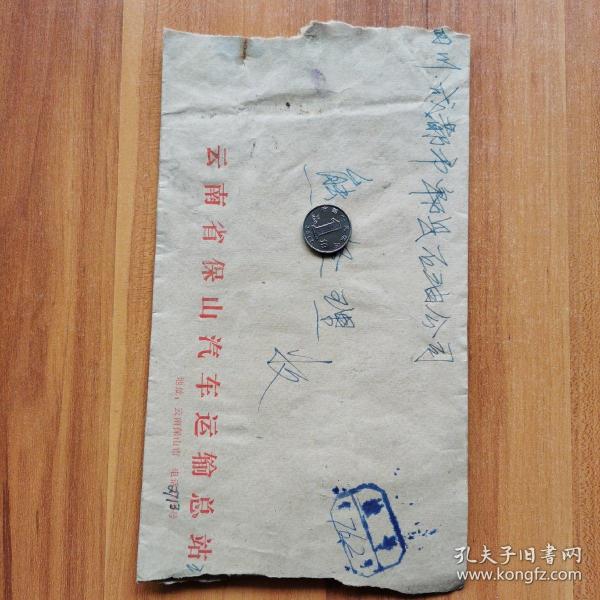 四川成都市郫县石油公司
熊
经理 收
云南省保山汽车运输总站
地址：云南保山 电话
742
孔夫子旧书网
www.kongfz.com